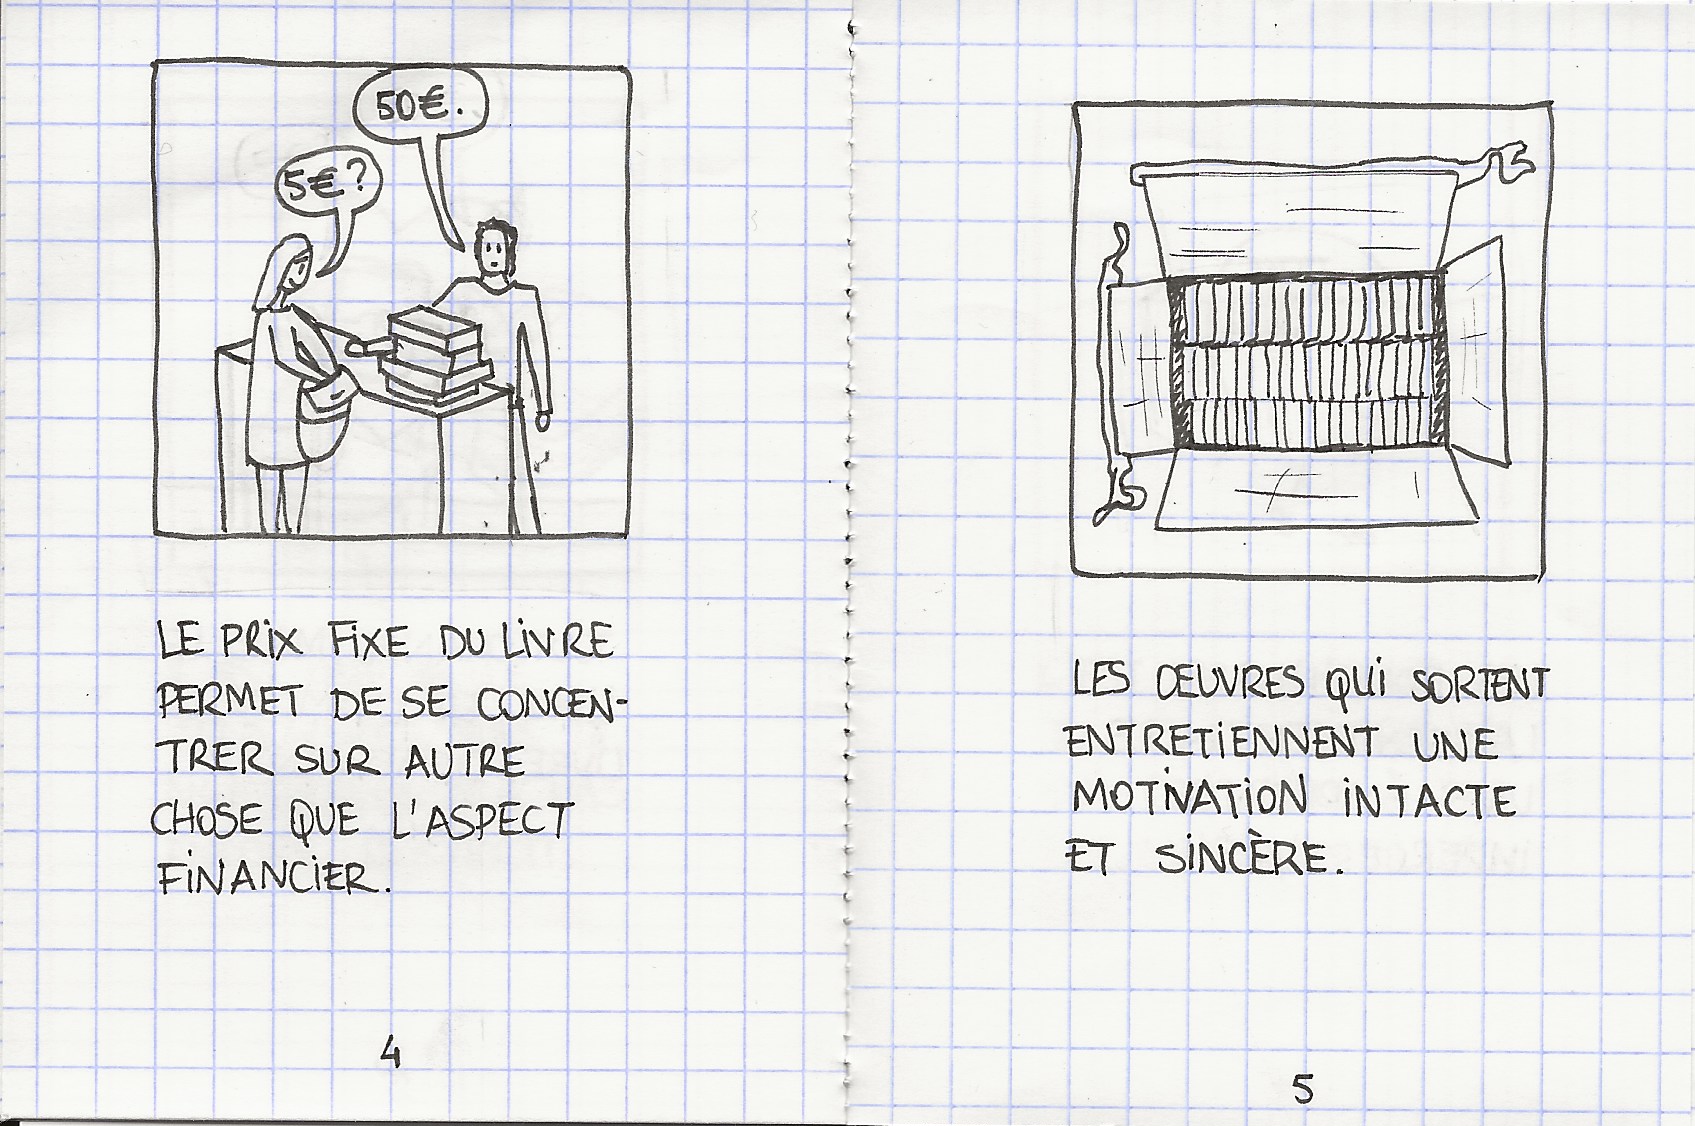 50€.
5€?
LE PRIX FIXE DU LIVRE
PERMET DE SE CONCEN-
TRER SUR AUTRE
CHOSE QUE L'ASPECT
FINANCIER.
4
LES ŒUVRES QUI SORTENT
ENTRETIENNENT UNE
MOTIVATION INTACTE
ET SINCÈRE.
5